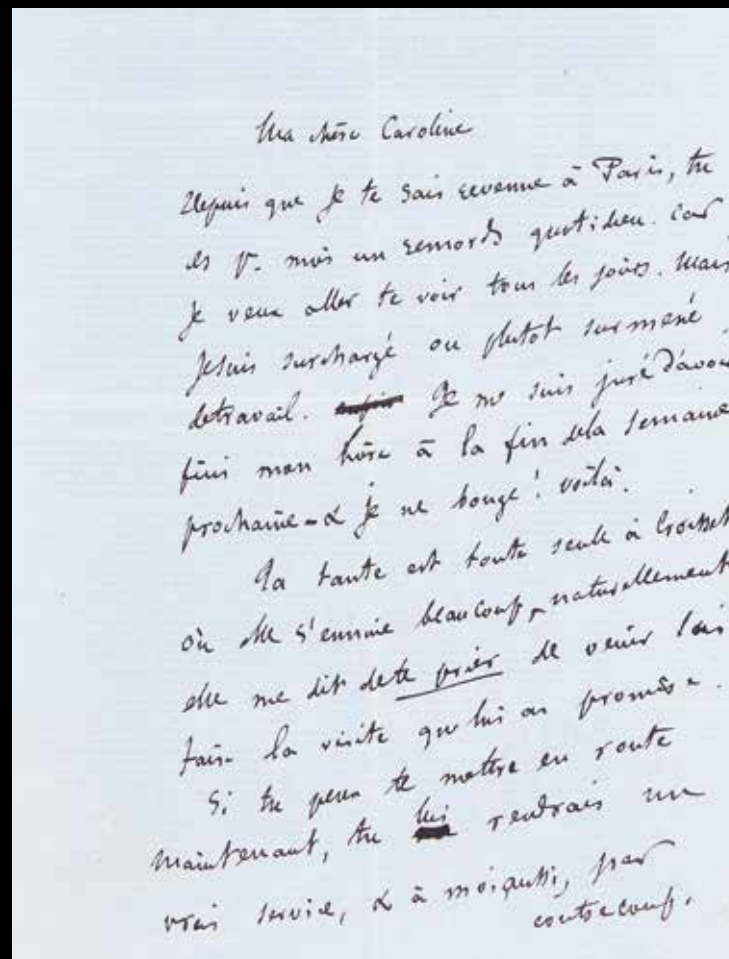 Ma chère Caroline
Depuis que je te sais revenue à Paris, tu
es p. moi un remords quotidien. car
je veux aller te voir tous les jours. Mais
je suis surchargé ou plutôt surmené
de travail. Je me suis juré d'avoir
fini mon livre à la fin de la semaine
prochaine - & je ne bouge ! voilà.
Ta tante est toute seule à Croisset
où elle s'ennuie beaucoup, naturellement
elle me dit de te prier de venir lui
faire la visite qu lui as promise.
Si tu peux te mettre en route
maintenant, tu lui rendrais un
vrai service, & à moi aussi, par
contrecoup.